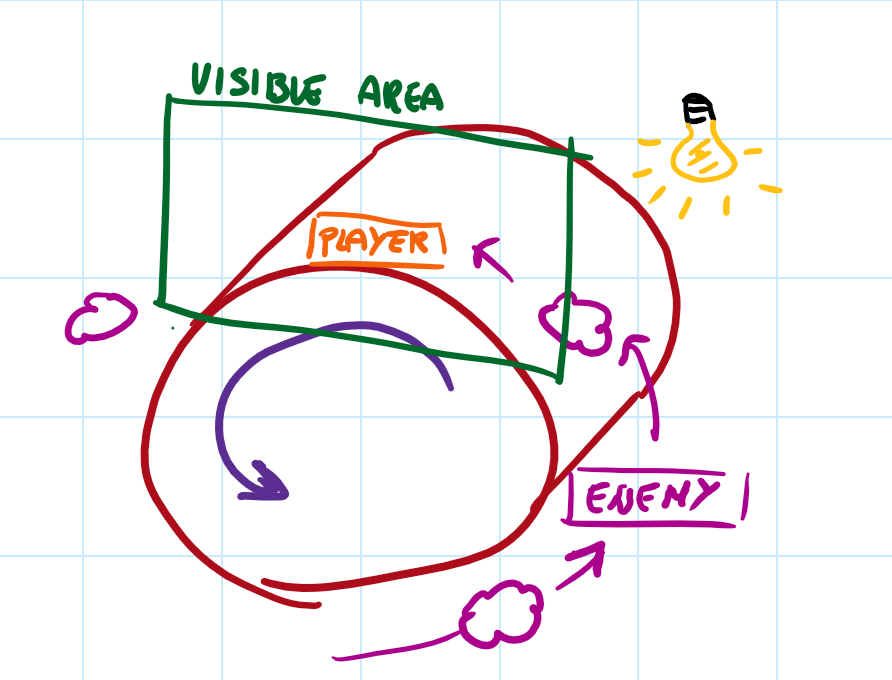 VISIBLE AREA
PLAYER
ENEMY